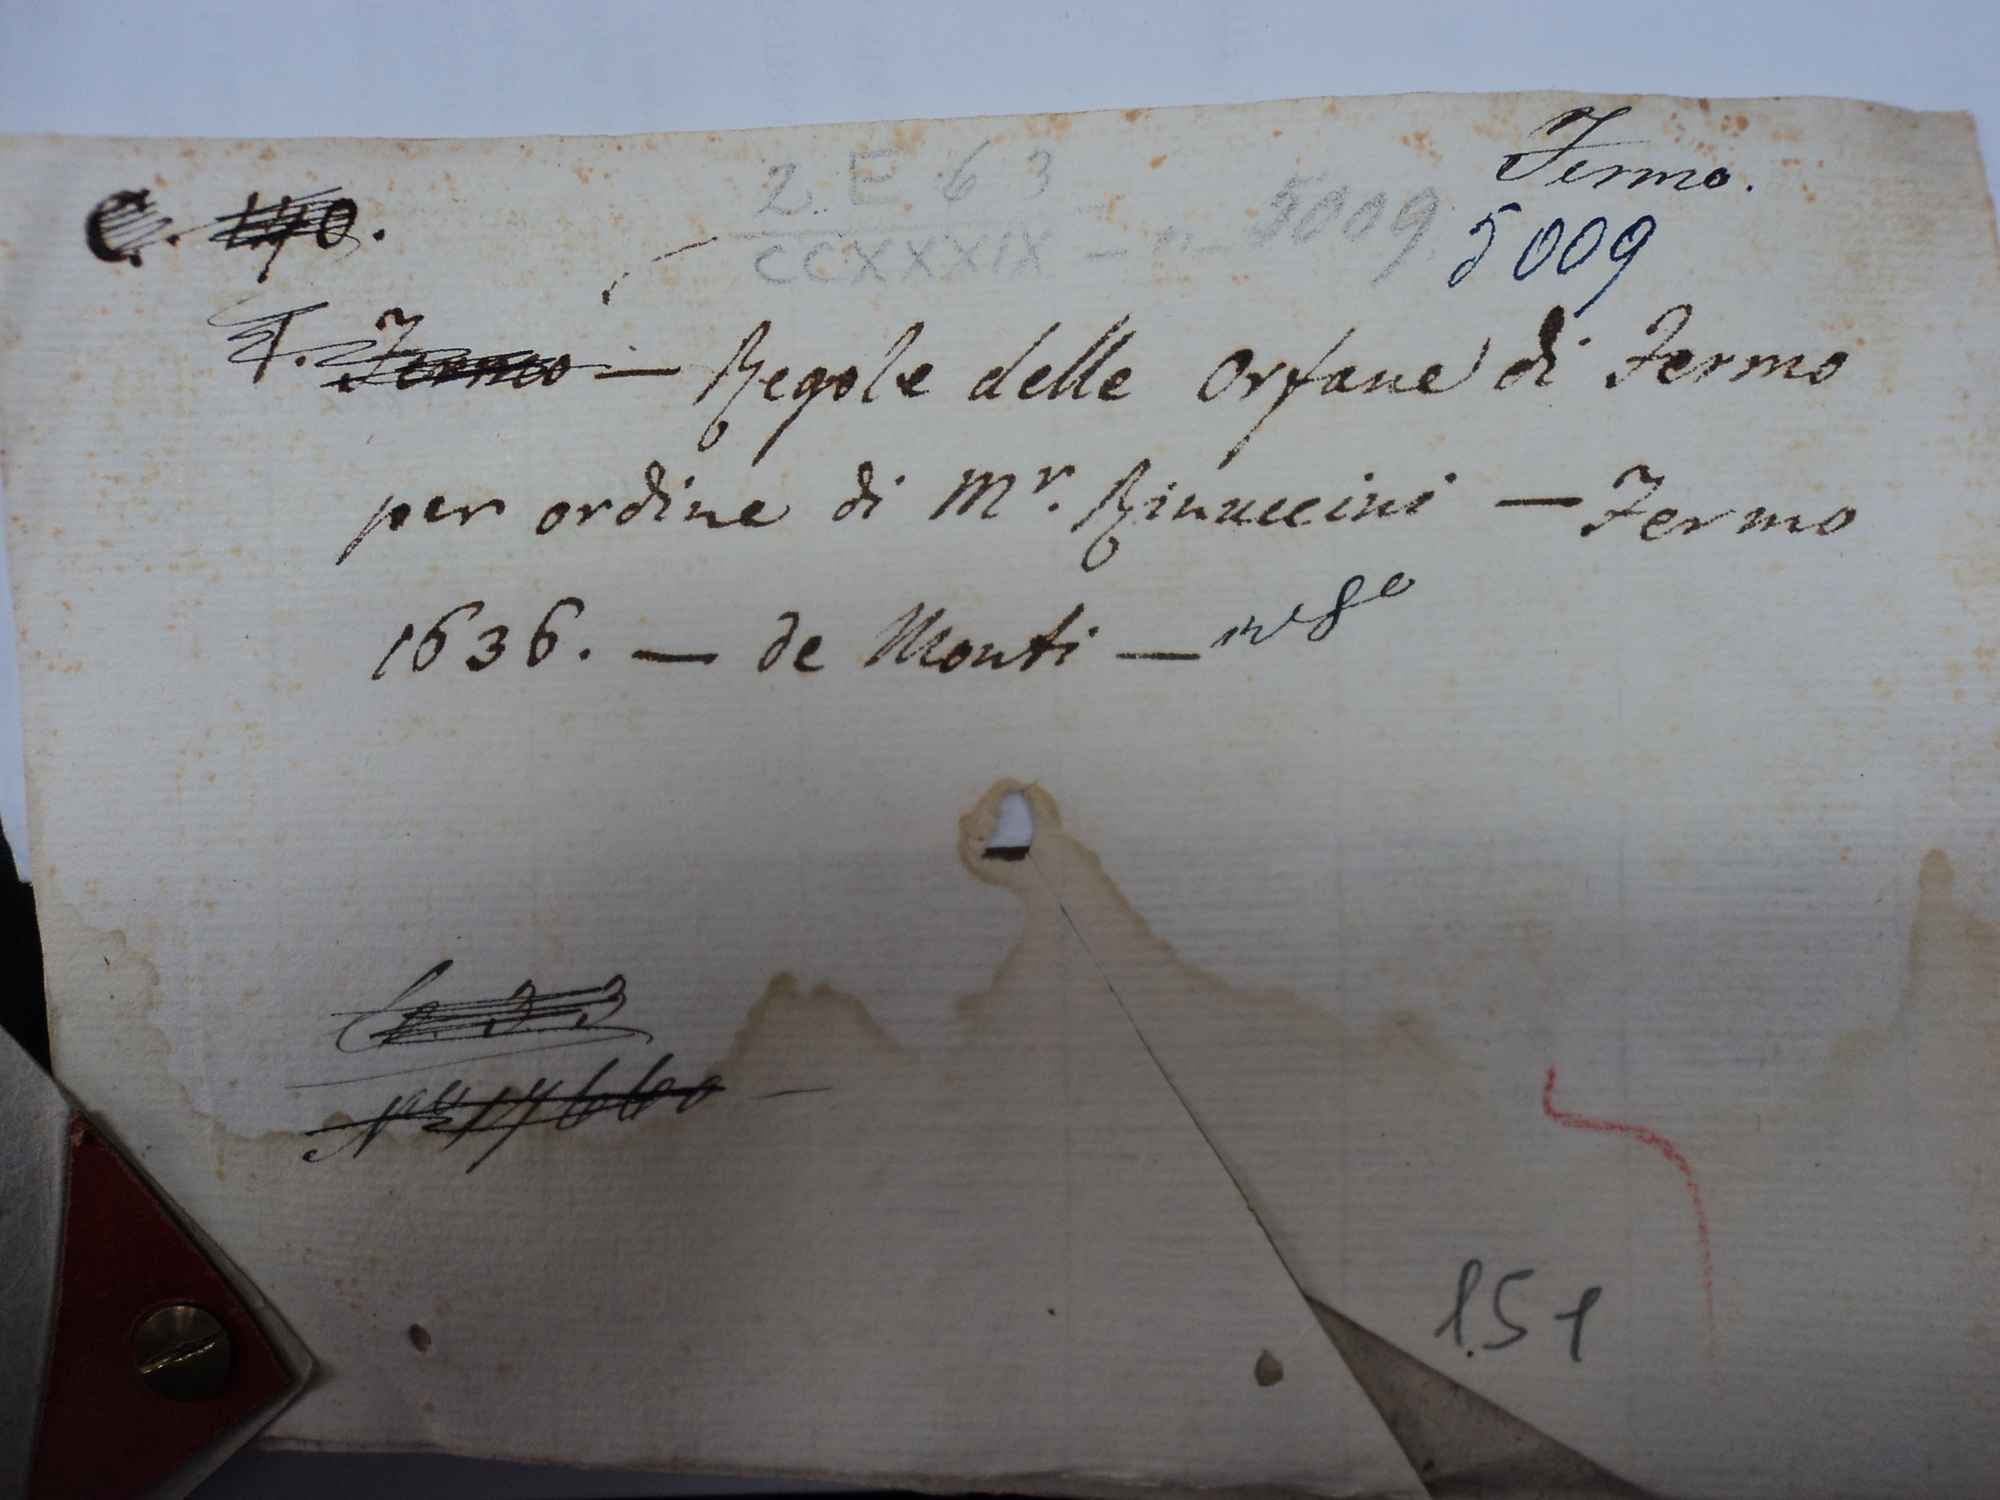 Fermo.
2 E 63
CCXXXIX – n – 5009
5009
C. 140.
T. Fermo – Regole delle Orfane di Fermo
per ordine di Mr. Rinuccini – Fermo
1636. – de Monti – in 8o
No 17660
151